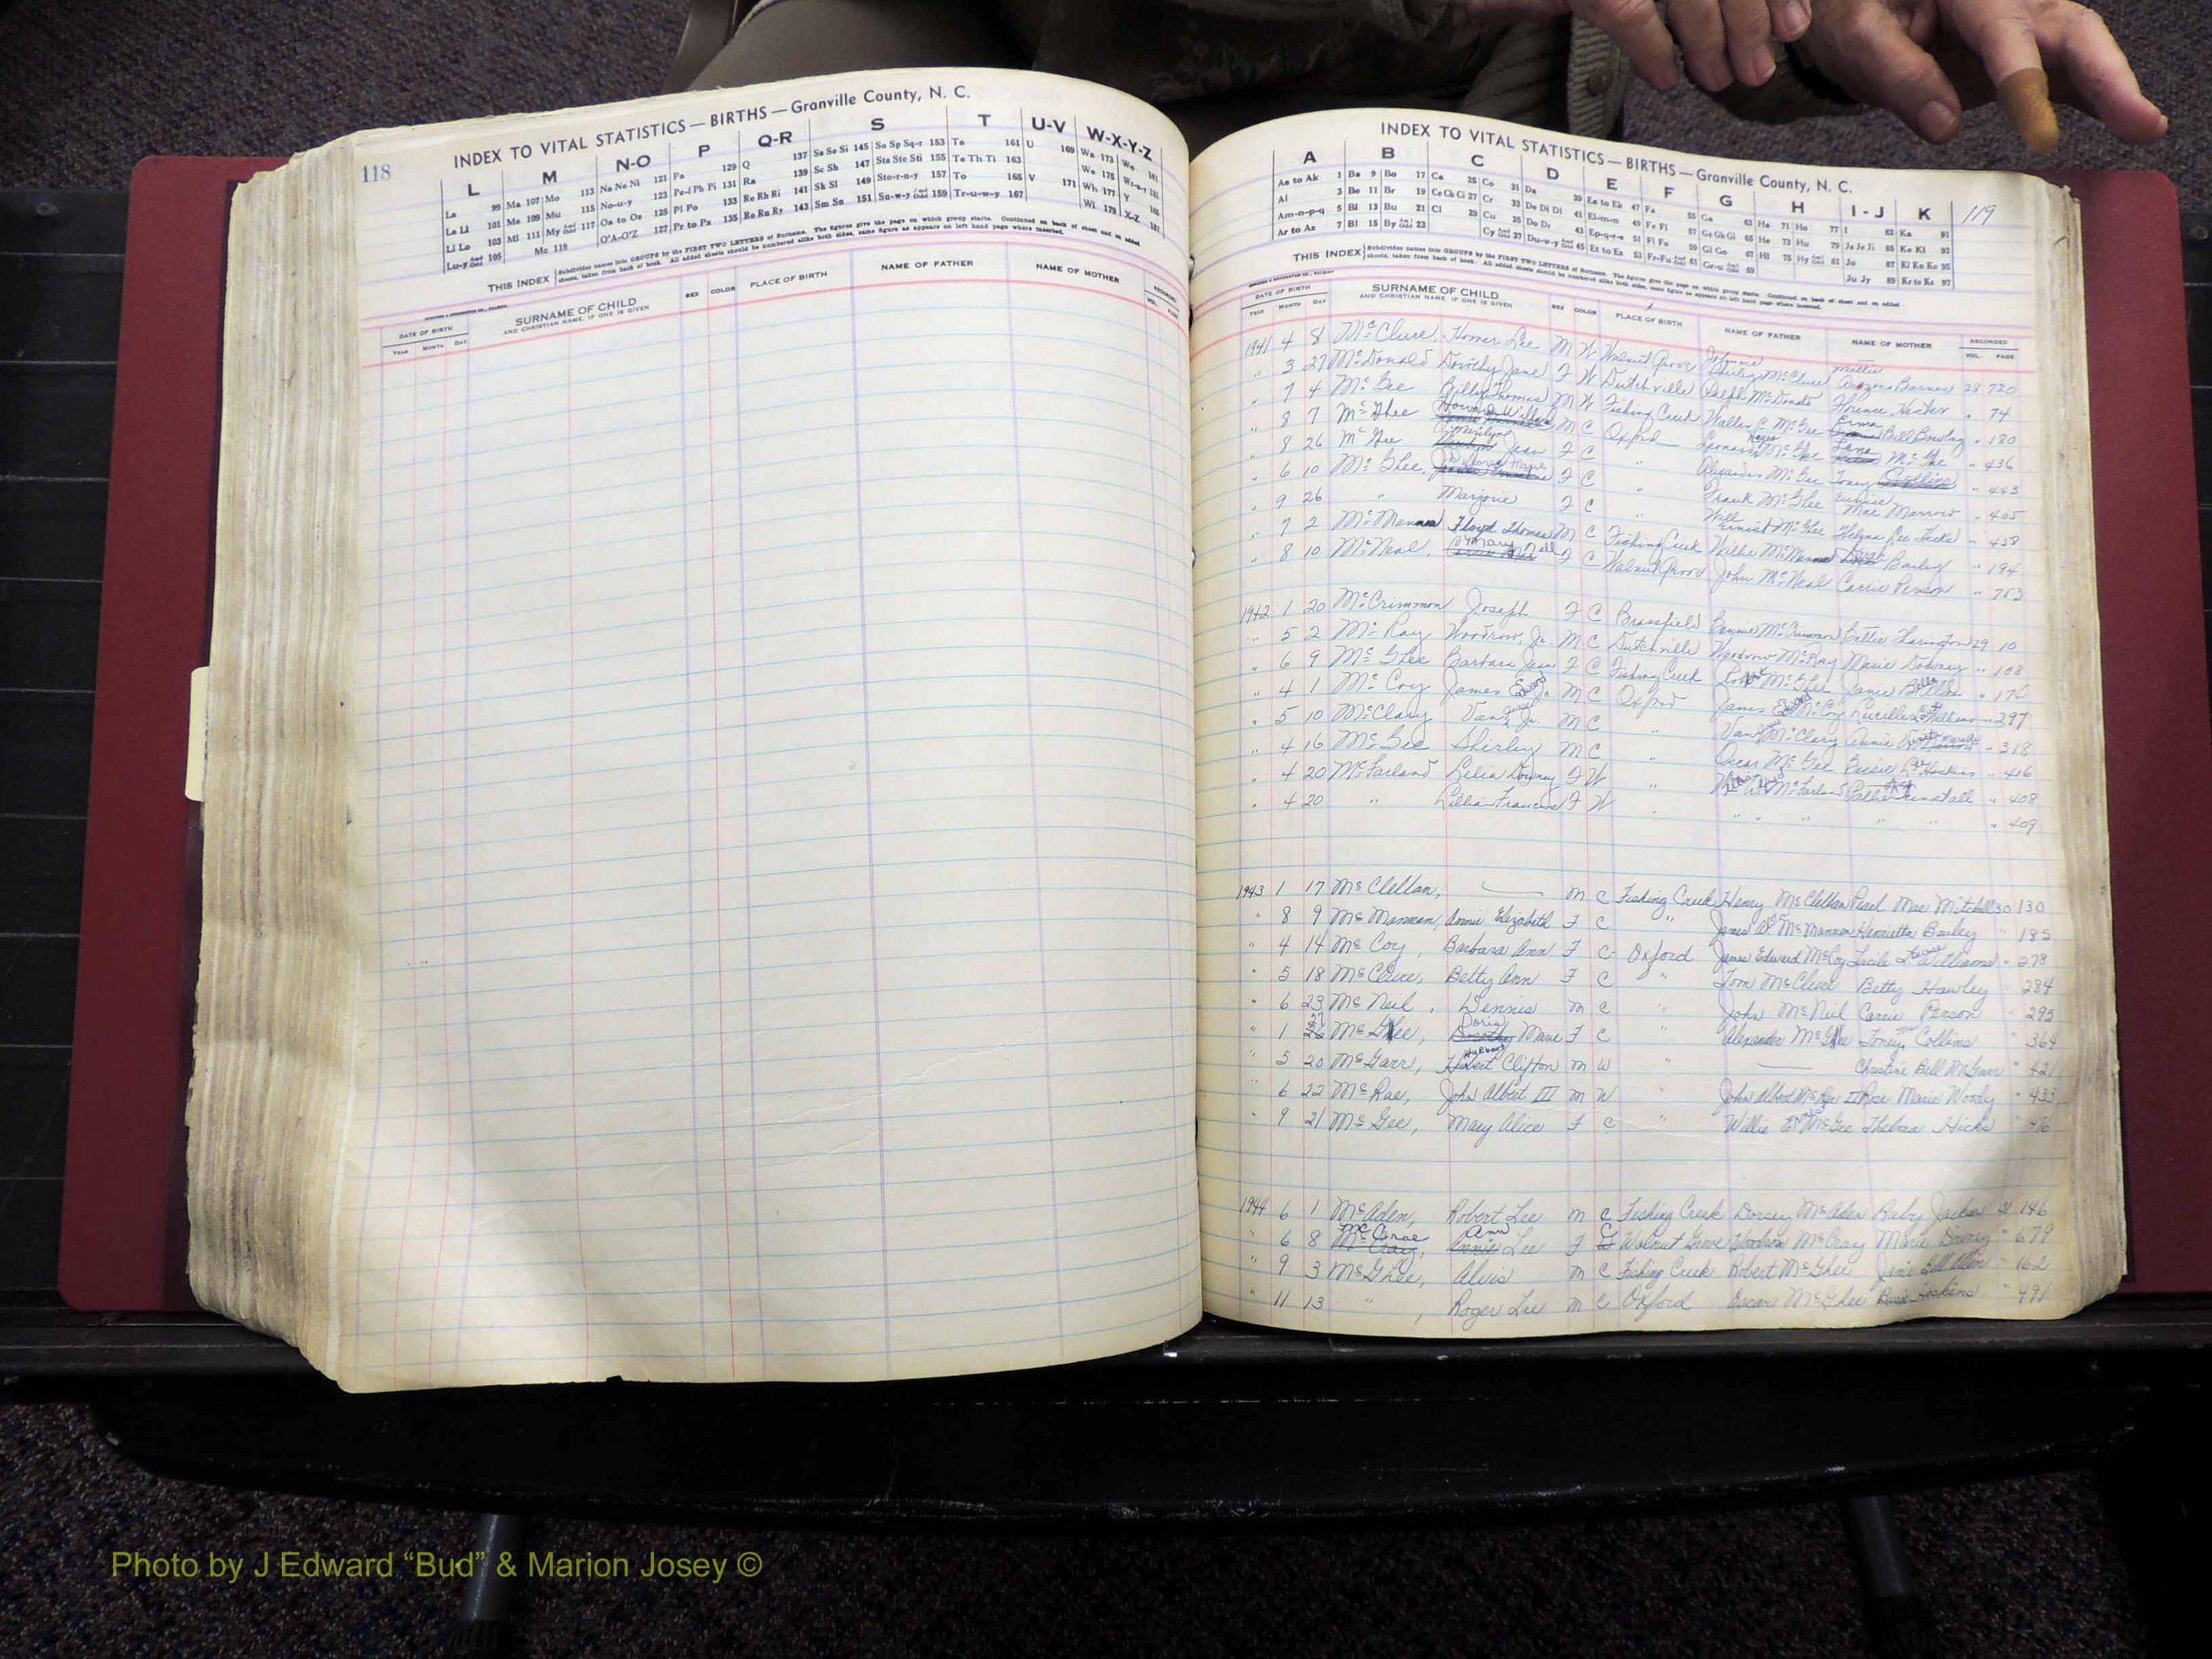 118
INDEX TO VITAL STATISTICS — BIRTHS — Granville County, N. C.
L M N-O P Q-R S T U-V W-X-Y-Z
La 99 Ma 107 Mo 113 Na Ne Ni 121 Pa 129 Q 137 Sa Se Si 145 So Sp Sq-r 153 Ta 161 U 169 Wa 173 Wo 181
Le Li 101 Me 109 Mu 115 No-u-y 123 Pe-f Ph Pi 131 Ra 139 Sc Sh 147 Sta Ste Sti 155 Te Th Ti 163 We 175
Li Lo 103 Mi 111 My And Odd 117 Oa to Oz 125 Pl Po 133 Re Rh Ri 141 Sk Sl 149 Sto-r-u-y 157 To 165 V 171 Wh 177 Y
Lu-y And Odd 105 Mc 118 O'A-O'Z 127 Pr to Pz 135 Ro Ru Ry 143 Sm Sn 151 Su-w-y And Odd 159 Tr-u-w-y 167 Wi 179 X-Z
THIS INDEX Subdivides names into GROUPS by the FIRST TWO LETTERS of Surname. The figures give the page on which group starts. Continued on back of sheet and on added
sheets, taken from back of book. All added sheets should be numbered alike both sides, same figure as appears on left hand page where inserted.
DATE OF BIRTH SURNAME OF CHILD SEX COLOR PLACE OF BIRTH NAME OF FATHER NAME OF MOTHER RECORDED
YEAR MONTH DAY AND CHRISTIAN NAME, IF ONE IS GIVEN VOL. PAGE
INDEX TO VITAL STATISTICS — BIRTHS — Granville County, N. C.
A B C D E F G H I-J K 119
Aa to Ak 1 Ba 9 Bo 17 Ca 25 Co 31 Da 39 Ea to Ek 47 Fa 55 Ga 63 Ha 71 Ho 77 I 83 Ka 91
Al 3 Be 11 Br 19 Ce Ch Ci 27 Cr 33 De Di Dl 41 El-m-n 49 Fe Fi 57 Ge Gh Gi 65 He 73 Hu 79 Ja Je Ji 85 Ke Ki 93
Am-n-p-q 5 Bi 13 Bu 21 Cl 29 Cu 35 Do Dr 43 Ep-q-r-s 51 Fl Fo 59 Gl Go 67 Hi 75 Hy And Odd 81 Jo 87 Kl Kn Ko 95
Ar to Az 7 Bl 15 By And Odd 23 Cy And Odd 37 Du-w-y And Odd 45 Et to Ez 53 Fr-Fu And Odd 61 Gr-u And Odd 69 Ju Jy 89 Kr to Kz 97
THIS INDEX Subdivides names into GROUPS by the FIRST TWO LETTERS of Surname. The figures give the page on which group starts. Continued on back of sheet and on added
sheets, taken from back of book. All added sheets should be numbered alike both sides, same figure as appears on left hand page where inserted.
DATE OF BIRTH SURNAME OF CHILD SEX COLOR PLACE OF BIRTH NAME OF FATHER NAME OF MOTHER RECORDED
YEAR MONTH DAY AND CHRISTIAN NAME, IF ONE IS GIVEN VOL. PAGE
1941 4 8 McClure, Homer Lee M W Walnut Grove McClure Mattie Arizona Barnes 28 720
" 3 27 McDonald Dorothy Jane F W Dutchville Ralph McDonald Florence Hester " 74
" 7 4 McGee Billy Thomas M W Fishing Creek Walter C. McGee Erma Bell Bowling " 180
" 8 7 McGhee Howard M C Oxford McGhee McGhee " 436
" 8 26 McGee Marilyn Jean F C " Alexander McGee Toney " 443
" 6 10 McGhee, Marie F C " Frank McGhee Eunice Mae Morrow " 405
" 9 26 " Marjorie F C " Will Ernest McGhee Thelma Lee Hicks " 458
" 7 2 Floyd Thomas M C Fishing Creek Willie Bailey " 194
" 8 10 McNeal, Mary Nell F C Walnut Grove John McNeal Carrie Person " 753
1942 1 20 McCrimmon Joseph F C Brassfield Bennie McCrimmon Bettie Harington 29 10
" 5 2 McRay Woodrow, Jr. M C Dutchville Woodrow McRay Marie Downey " 108
" 6 9 McGhee Barbara Jean F C Fishing Creek McGhee Janie " 175
" 4 1 McCoy James Edward Jr. M C Oxford James Edward McCoy Lucille " 297
" 5 10 McClary Van Jr. M C " Van McClary Annie " 318
" 4 16 McGee Shirley M C " Oscar McGee Bessie Lee Hoskins " 416
" 4 20 McFarland Lelia Downey F W " McFarland Tunstall " 408
" 4 20 " Lillian Frances F W " " " " " " " 409
1943 1 17 McClellan, — M C Fishing Creek Henry McClellan Pearl Mae Mitchell 30 130
" 8 9 McMannon, Annie Elizabeth F C " James McMannon Henrietta Bailey " 185
" 4 14 McCoy, Barbara Ann F C Oxford James Edward McCoy Lucile Williams " 278
" 5 18 McClure, Betty Ann F C " Tom McClure Betty Hawley " 284
" 6 23 McNeil, Dennis M C " John McNeil Carrie Person " 295
" 1 27 McGee, Doris Marie F C " Alexander McGee Toney Mae Collins " 364
" 5 20 McGarr, Hulbert Clifton M W " — Christine Bell McGarr " 421
" 6 22 McRae, John Albert III M W " John Albert McRae II Rose Marie Woody " 433
" 9 21 McGee, Mary Alice F C " Willie Ernest McGee Thelma Hicks " 476
1944 6 1 McAden, Robert Lee M C Fishing Creek Dorsey McAden Ruby 31 146
" 6 8 McCrae Ann Lee F C Walnut Grove Woodson McCray Marie Downey " 679
" 9 3 McGhee, Alvis M C Fishing Creek Robert McGhee Janie Bell Allen " 162
" 11 13 ", Roger Lee M C Oxford Oscar McGhee Bessie Hoskins " 491
Photo by J Edward “Bud” & Marion Josey ©